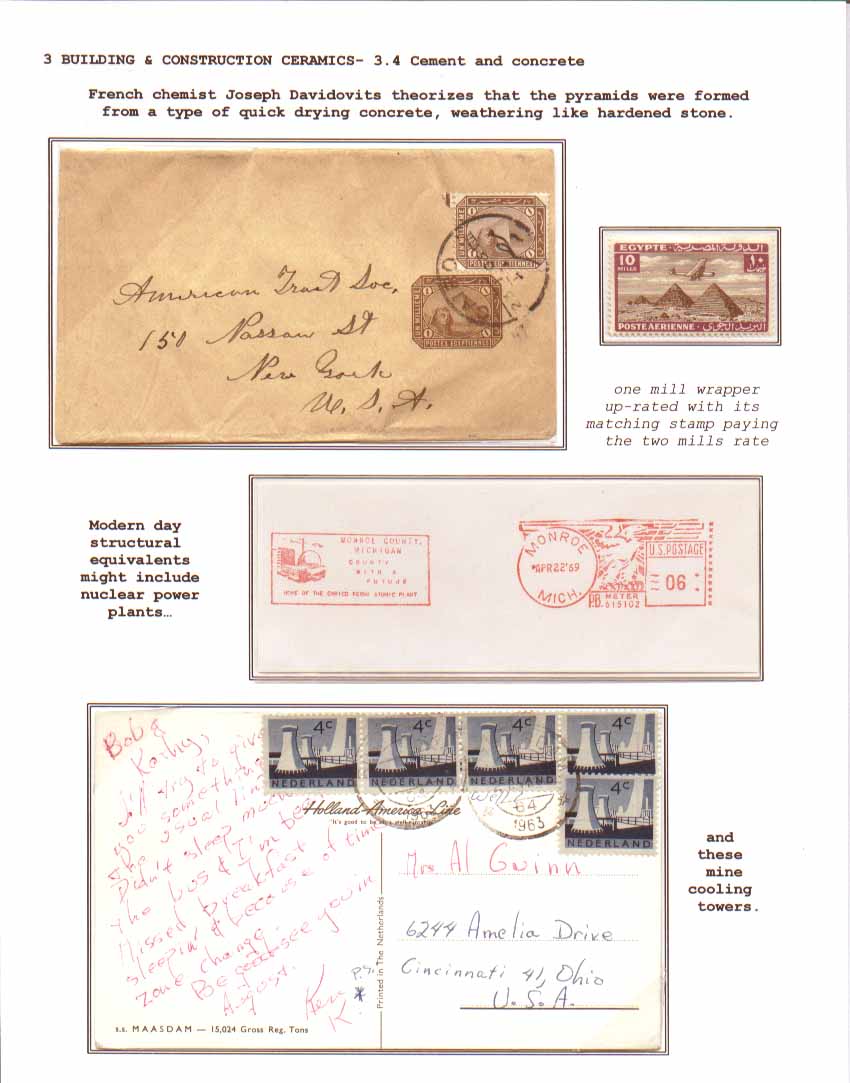 3 BUILDING & CONSTRUCTION CERAMICS- 3.4 Cement and concrete
French chemist Joseph Davidovits theorizes that the pyramids were formed
from a type of quick drying concrete, weathering like hardened stone.
American Tract Soc.
150 Nassau St
New York
U. S. A.
EGYPTE الدولة المصرية
10
MILLS
POSTE AERIENNE البريد الجوى
one mill wrapper
up-rated with its
matching stamp paying
the two mills rate
Modern day
structural
equivalents
might include
nuclear power
plants…
MONROE COUNTY,
MICHIGAN
COUNTY
WITH A
FUTURE
HOME OF THE ENRICO FERMI ATOMIC PLANT
MONROE
APR 22 '69
MICH.
U.S. POSTAGE
06
P.B. METER
615102
4c
NEDERLAND
4c
NEDERLAND
4c
NEDERLAND
4c
4c
NEDERLAND
1963
Holland-America Line
"It's good to be on a well-run ship"
Bob &
Kathy,
I'll try to give
you something
the usual
Didn't sleep much
the bus & I'm
Missed breakfast
sleepin' because of time
zone change.
see you in
August.
Ken
K.
P.S.
Printed in The Netherlands
Mrs Al Guinn
6244 Amelia Drive
Cincinnati 41, Ohio
U.S.A.
s.s. MAASDAM — 15,024 Gross Reg. Tons
and
these
mine
cooling
towers.